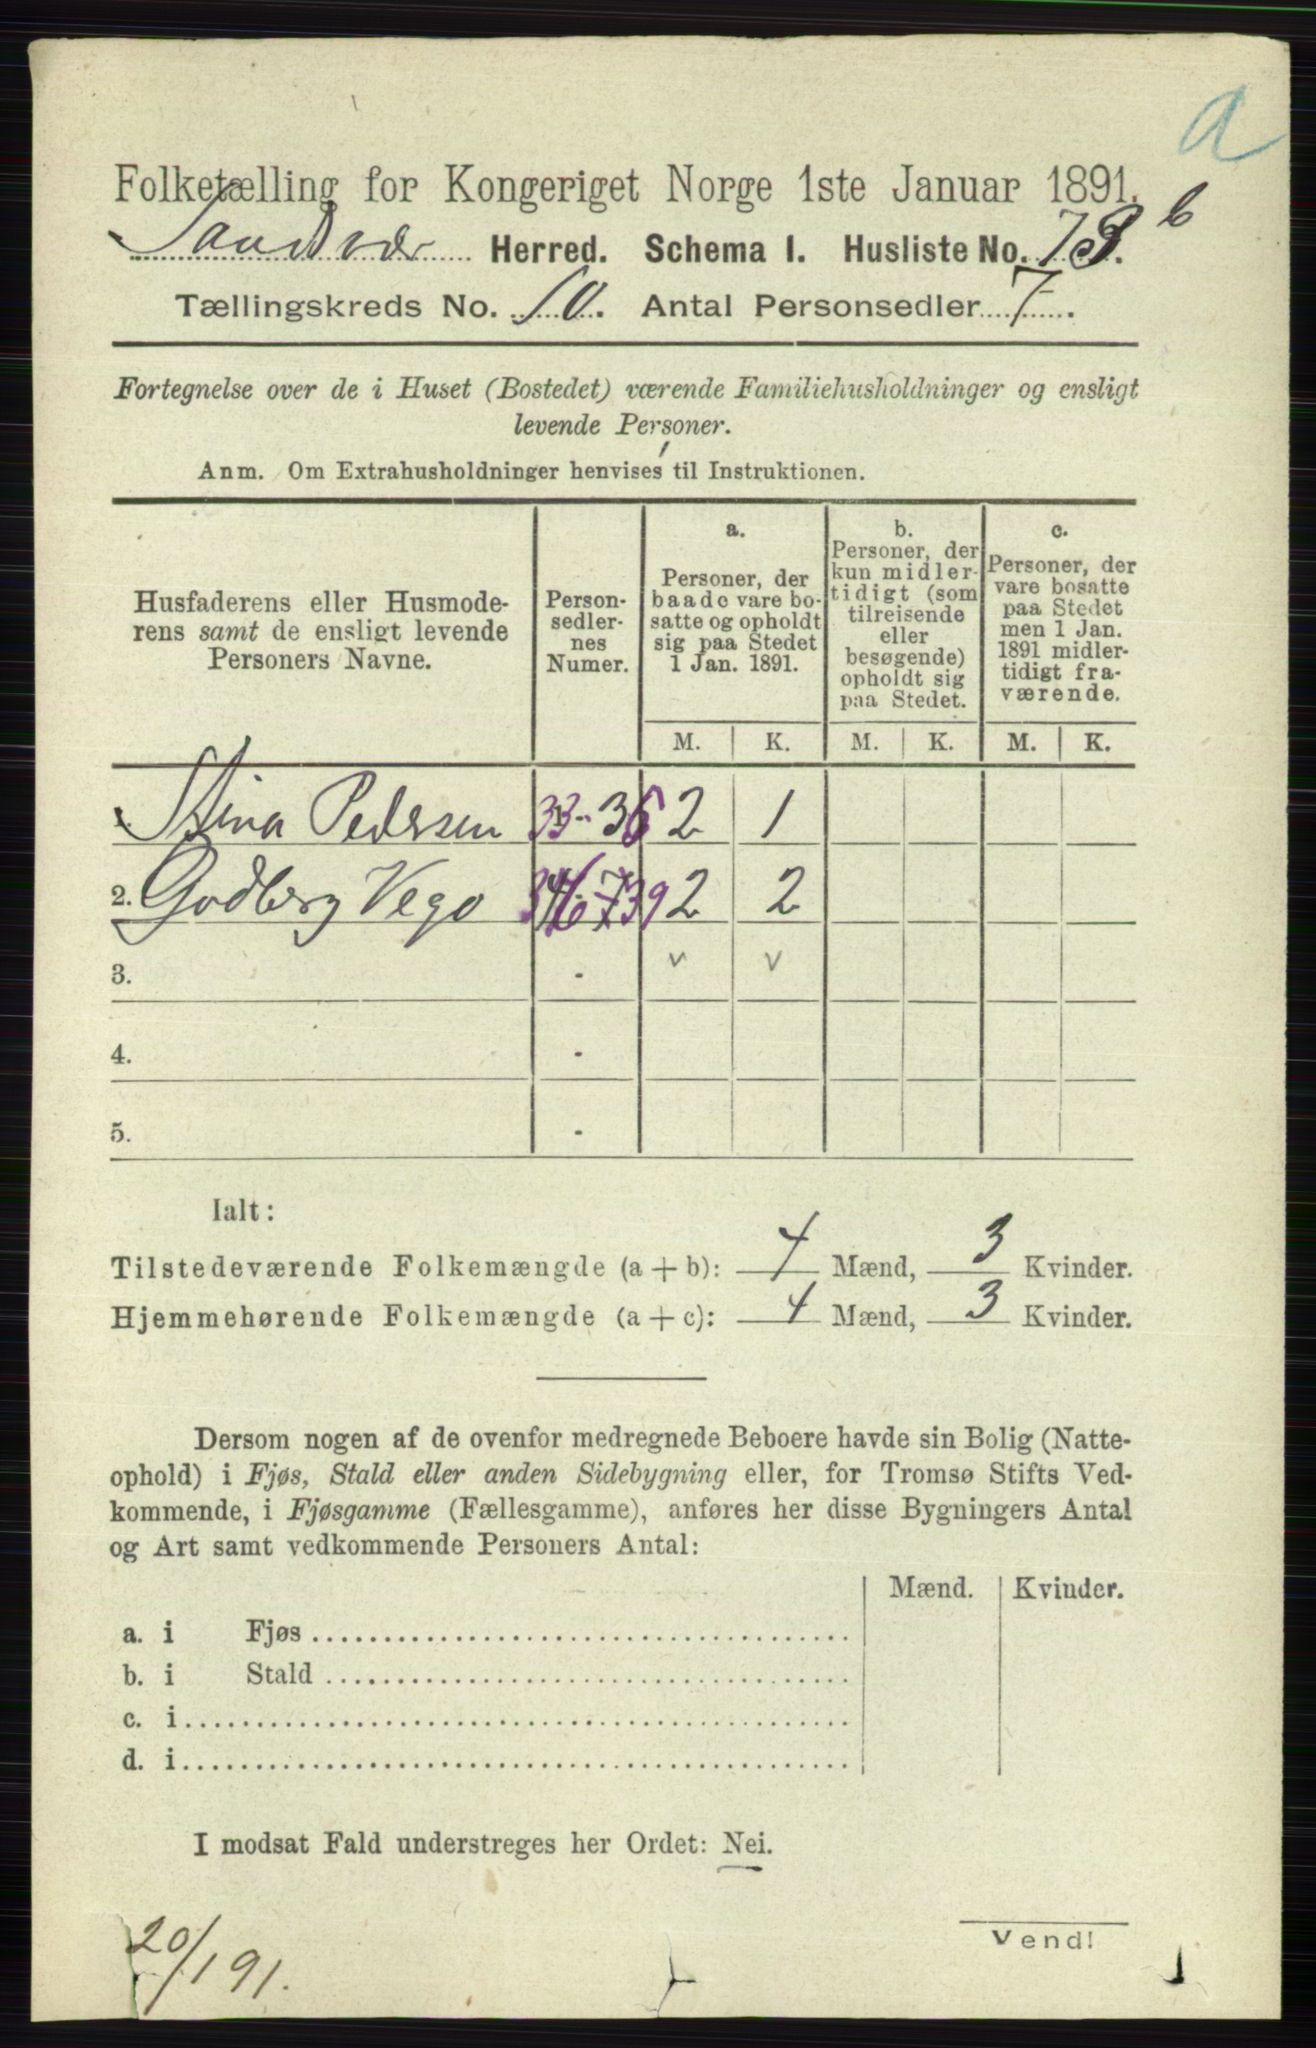 a
Folketælling for Kongeriget Norge 1ste Januar 1891.
Sandsvær Herred. Schema I. Husliste No. 73. b
Tællingskreds No. 10. Antal Personsedler 7.
Fortegnelse over de i Huset (Bostedet) værende Familiehusholdninger og ensligt
levende Personer.
Anm. Om Extrahusholdninger henvises til Instruktionen.
Husfaderens eller Husmoderens samt de ensligt levende Personers Navne.
Personsedlernes Numer.
a.
Personer, der baade vare bosatte og opholdt sig paa Stedet 1 Jan. 1891.
b.
Personer, der kun midlertidigt (som tilreisende eller besøgende) opholdt sig paa Stedet.
c.
Personer, der vare bosatte paa Stedet men 1 Jan. 1891 midlertidigt fraværende.
M. K. M. K. M. K.
Stina Pedersen 2 1
2. Godberg Vego 2 2
3. - v v
4. -
5. -
Ialt:
Tilstedeværende Folkemængde (a + b): 4 Mænd, 3 Kvinder.
Hjemmehørende Folkemængde (a + c): 4 Mænd, 3 Kvinder.
Dersom nogen af de ovenfor medregnede Beboere havde sin Bolig (Natte-
ophold) i Fjøs, Stald eller anden Sidebygning eller, for Tromsø Stifts Ved-
kommende, i Fjøsgamme (Fællesgamme), anføres her disse Bygningers Antal
og Art samt vedkommende Personers Antal:
Mænd. Kvinder.
a. i Fjøs
b. i Stald
c. i
d. i
I modsat Fald understreges her Ordet: Nei.
20/1 91.
Vend!